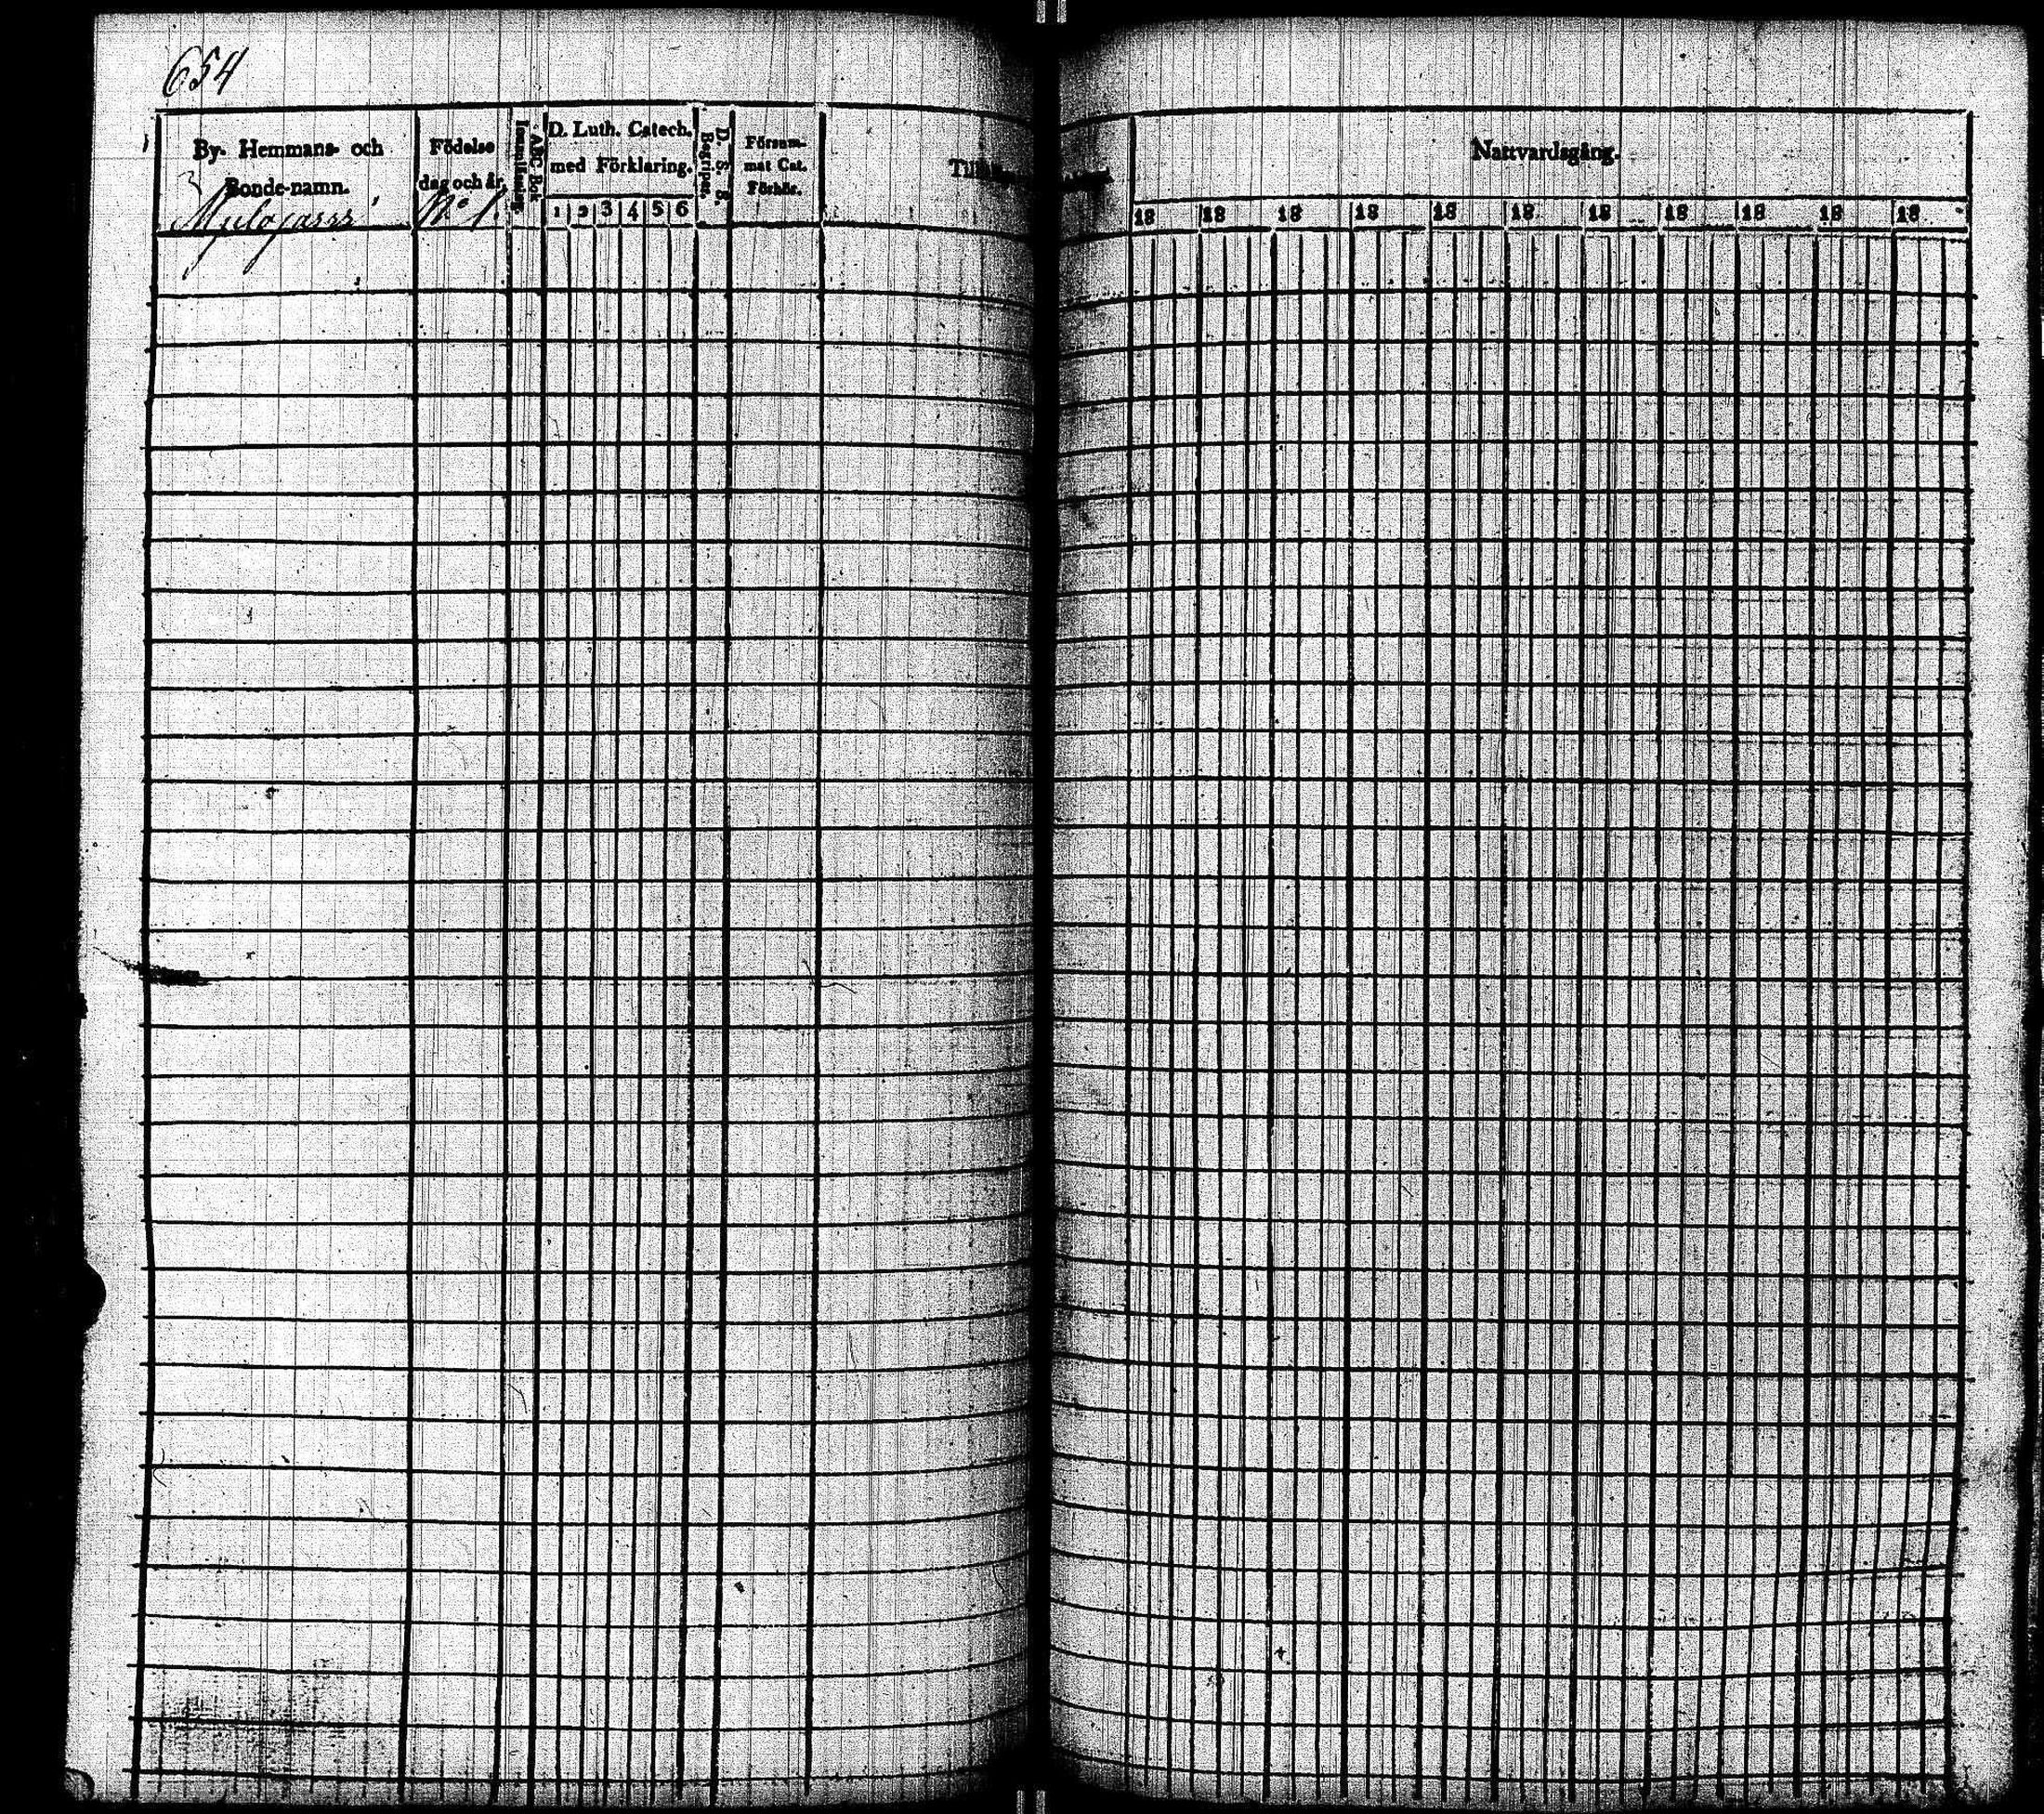 654
By- Hemmans- och
Bonde-namn.
Födelse
dag och år.
No 1.
ABC Bok
D. Luth. Catech.
med Förklaring.
1 2 3 4 5 6
D. S. S.
Begriper.
Försum-
mat Cat.
Förhör.
Nattvardsgång.
18 18 18 18 18 18 18 18 18 18 18